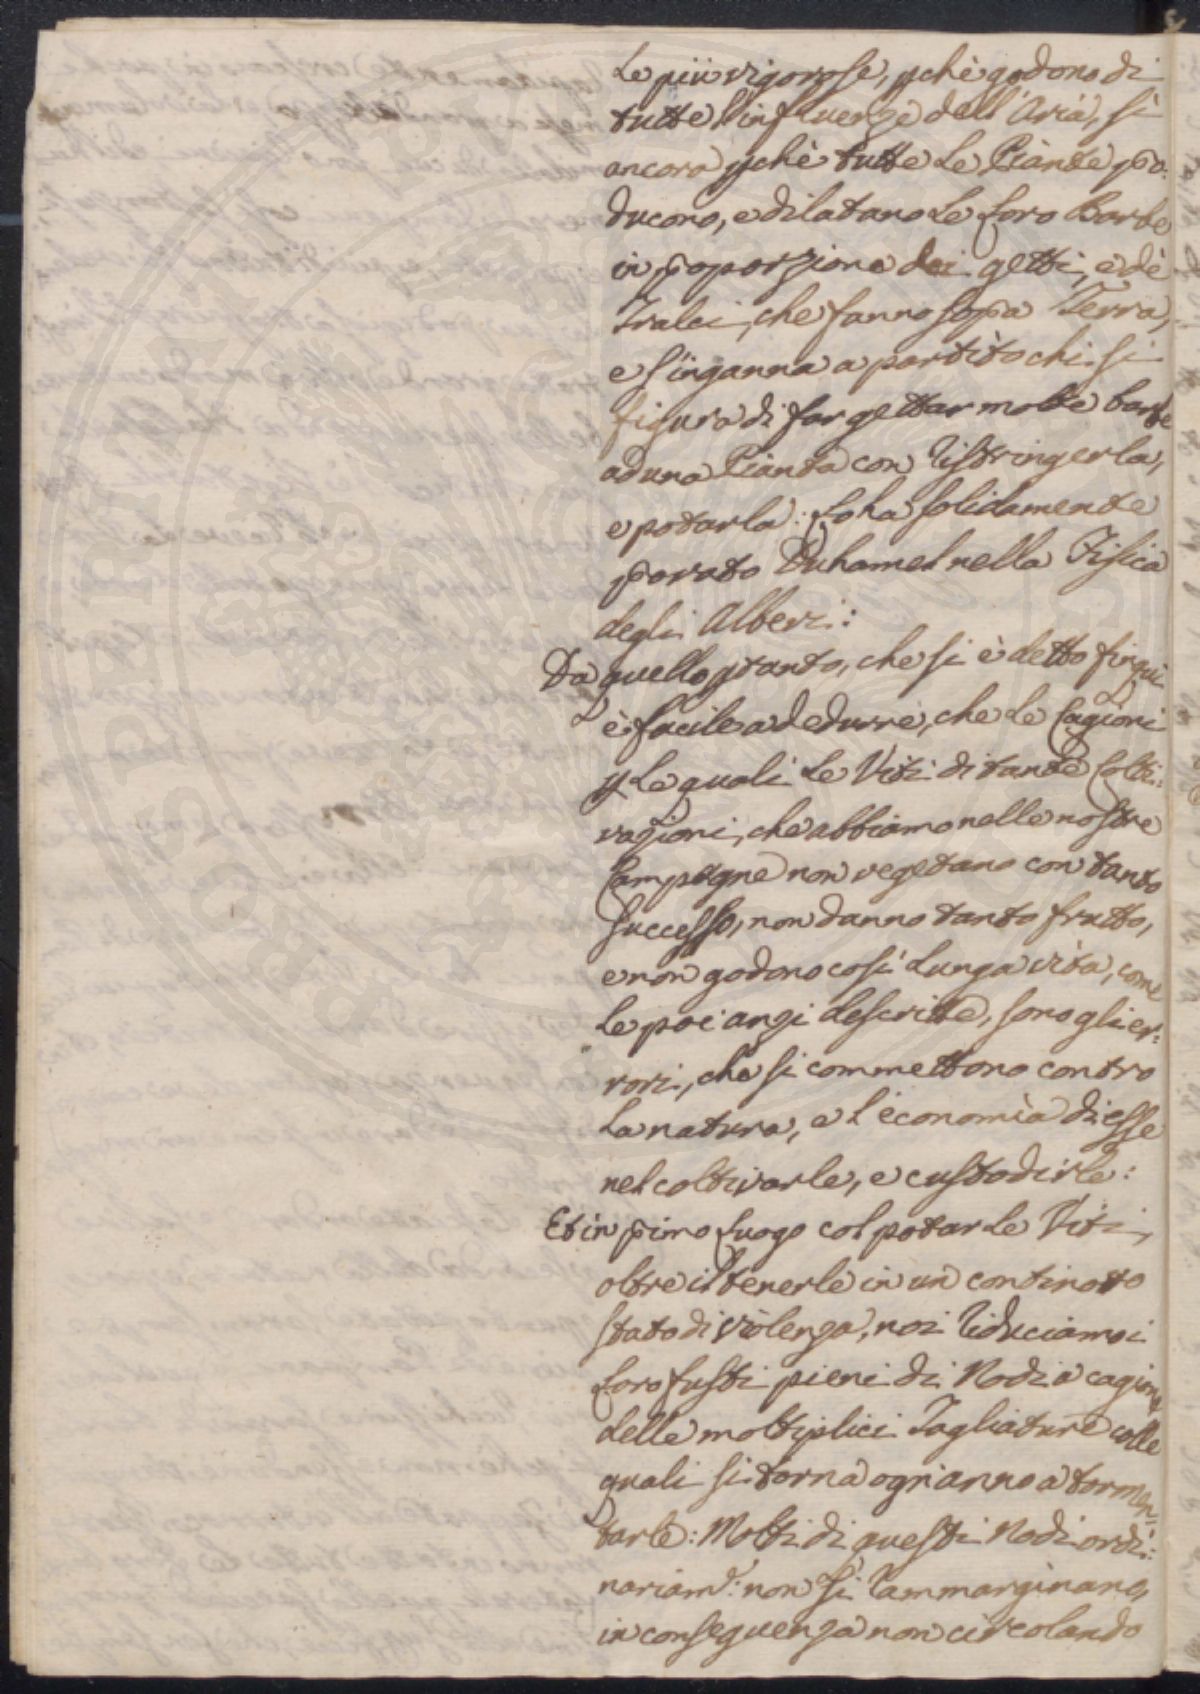 Le più vigorose, pchè godono di
tutte l'influenze dell'Aria, sì
ancora pchè tutte le Piante pro:
ducono, e dilatano le loro Barbe
in proporzione dei getti, e dè
Tralci, che fanno sopra Terra,
e s'inganna a partito chi si
figura di far gettar molte barbe
ad una Pianta con ristringerla,
e potarla: Lo ha solidamente
provato Duhamel nella Fisica
degli Alberi:
Da quello ptanto, che si è detto finqui
è facile a dedurre, che le Cagioni
p le quali le Viti di tante Colti:
vazioni, che abbiamo nelle nostre
Campagne non vegetano con tanto
successo, non danno tanto frutto,
e non godono così lunga vita, come
le poc'anzi descritte, sono gli er:
rori, che si commettono contro
la natura, e l'economia di esse
nel coltivarle, e custodirle:
Et in primo luogo col potar le Viti,
oltre il tenerle in un continovo
stato di violenza, noi riduciamo i
loro fusti pieni di Nodi a cagione
delle moltiplici Tagliature colle
quali si torna ogn'anno a tormen:
tarle: Molti di questi Nodi ordi:
nariam:e non si rammarginano,
in conseguenza non circolando